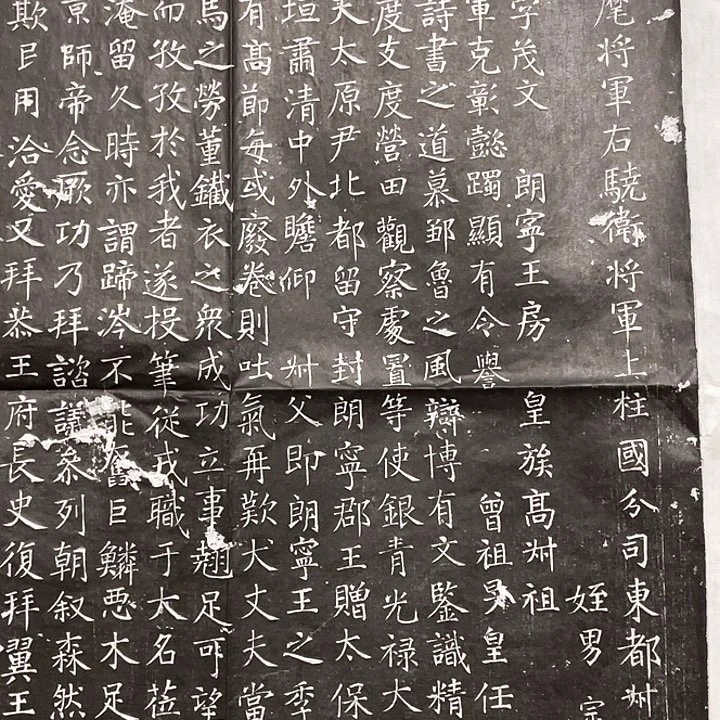 麾将軍右驍衛将軍上柱國分司東都州
姪男宗
字茂文 朗寧王房 皇族髙州祖
軍克彰懿躅顯有令譽 曾祖昊皇任
詩書之道慕鄒魯之風辯博有文鑒識精
度支度營田觀察處置等使銀青光禄大
天太原尹北都留守封朗寧郡王贈太保
垣肅清中外瞻仰 州父即朗寧王之季
有髙節每或廢卷則吐氣再歎大丈夫當
馬之勞董鐵衣之衆成功立事翹足可望
而孜孜於我者遂投筆從戎職于大名莅
淹留久時亦謂蹄涔不能奮巨鱗惡木足
京師帝念厥功乃拜諮議叅列朝叙森然
欺目用洽愛又拜恭王府長史復拜翼王